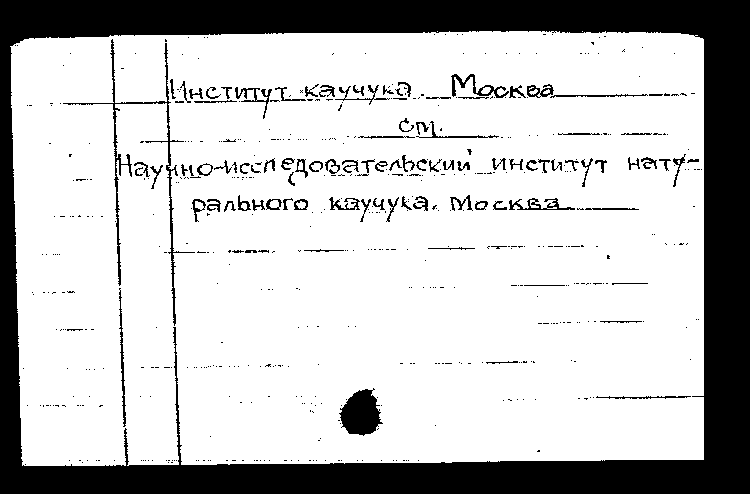 Институт каучука. Москва
см.
Научно-исследовательский институт нату-
рального каучука. Москва.